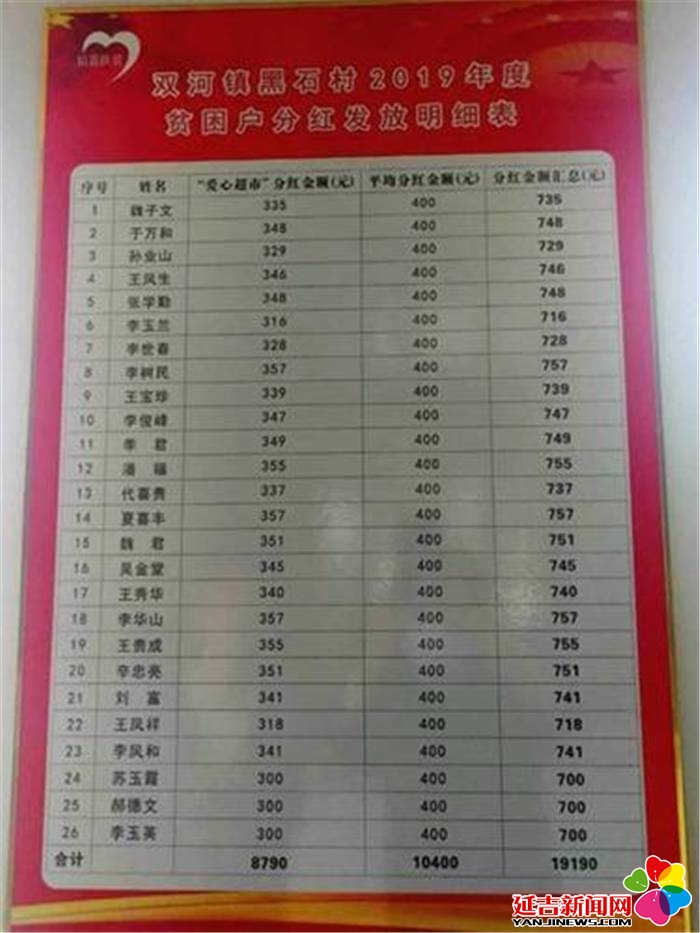 精准扶贫
双河镇黑石村2019年度
贫困户分红发放明细表
序号 姓名 “爱心超市”分红金额(元) 平均分红金额(元) 分红金额汇总(元)
1 魏子文 335 400 735
2 于万和 348 400 748
3 孙业山 329 400 729
4 王凤生 346 400 746
5 张学勤 348 400 748
6 李玉兰 316 400 716
7 李世春 328 400 728
8 李树民 357 400 757
9 王宝珍 339 400 739
10 李俊峰 347 400 747
11 李君 349 400 749
12 潘福 355 400 755
13 代喜贵 337 400 737
14 夏喜丰 357 400 757
15 魏君 351 400 751
16 吴金堂 345 400 745
17 王秀华 340 400 740
18 李华山 357 400 757
19 王贵成 355 400 755
20 辛忠亮 351 400 751
21 刘富 341 400 741
22 王凤祥 318 400 718
23 李凤和 341 400 741
24 苏玉霞 300 400 700
25 郝德文 300 400 700
26 李玉英 300 400 700
合计 8790 10400 19190
延吉新闻网
YANJINEWS.COM